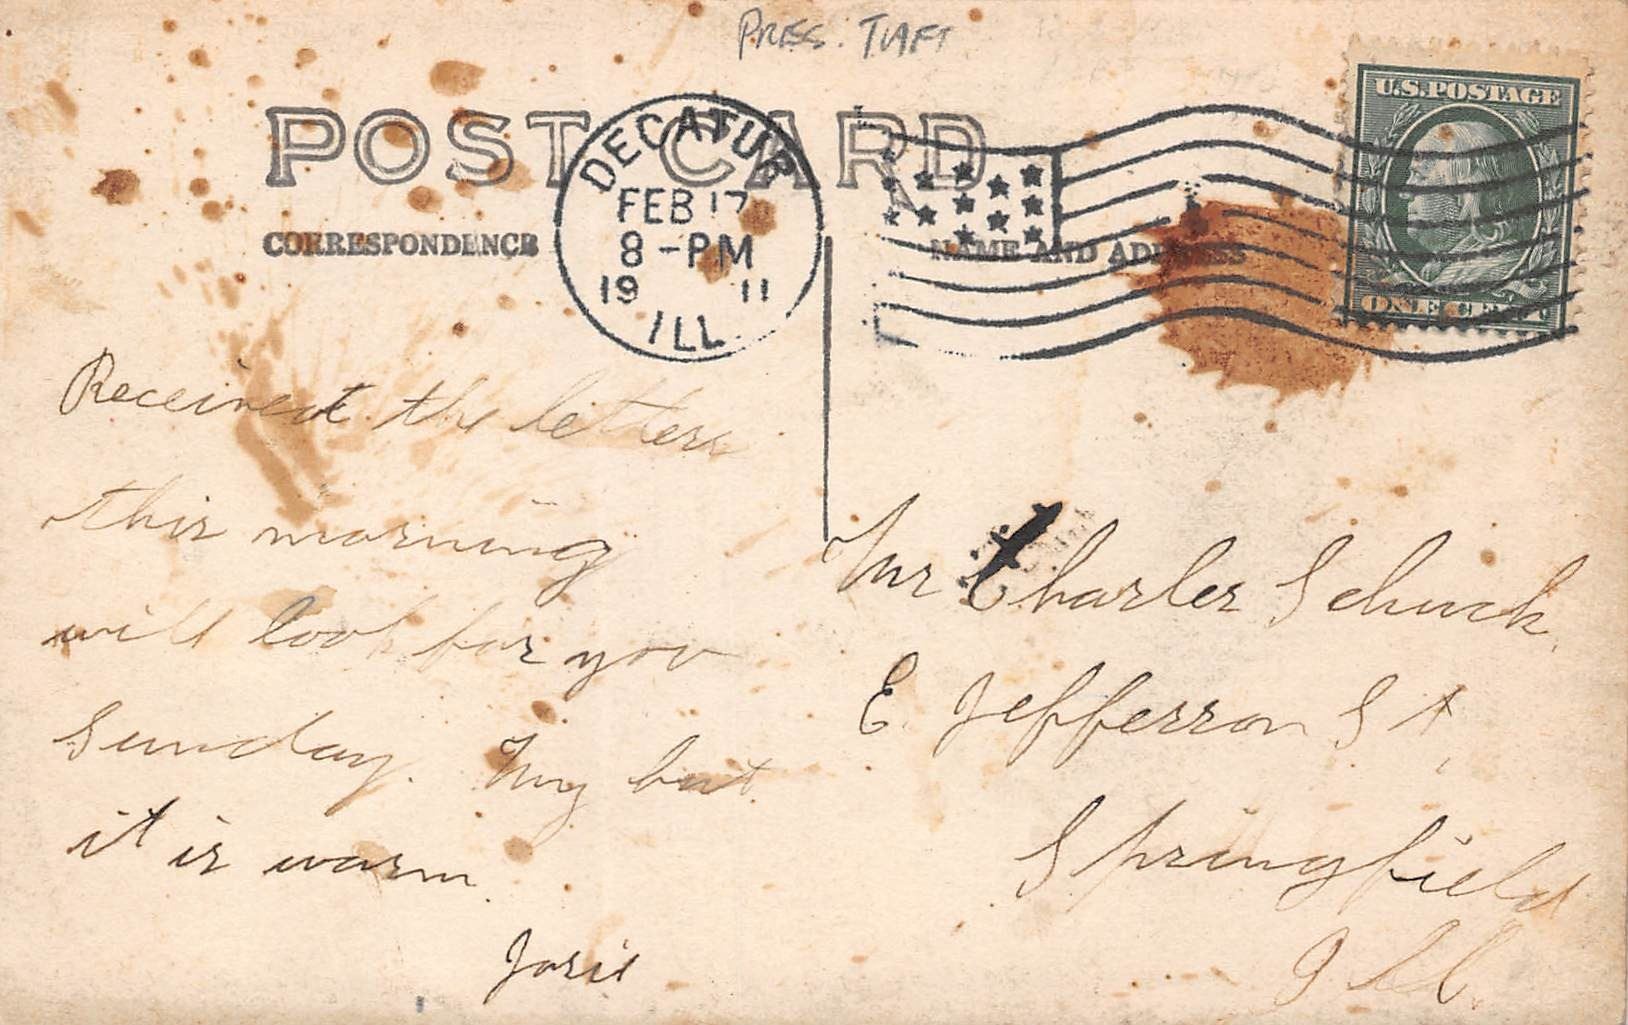 PRES. TAFT
U.S. POSTAGE
POST CARD
DECATUR
FEB 17
8-PM
19 11
ILL.
CORRESPONDENCE
NAME AND ADDRESS
ONE CENT
Received the letters
this morning
will look for you
Sunday. My but
it is warm
Mr Charles Schuck
E. Jefferson St,
Springfield
Ill.